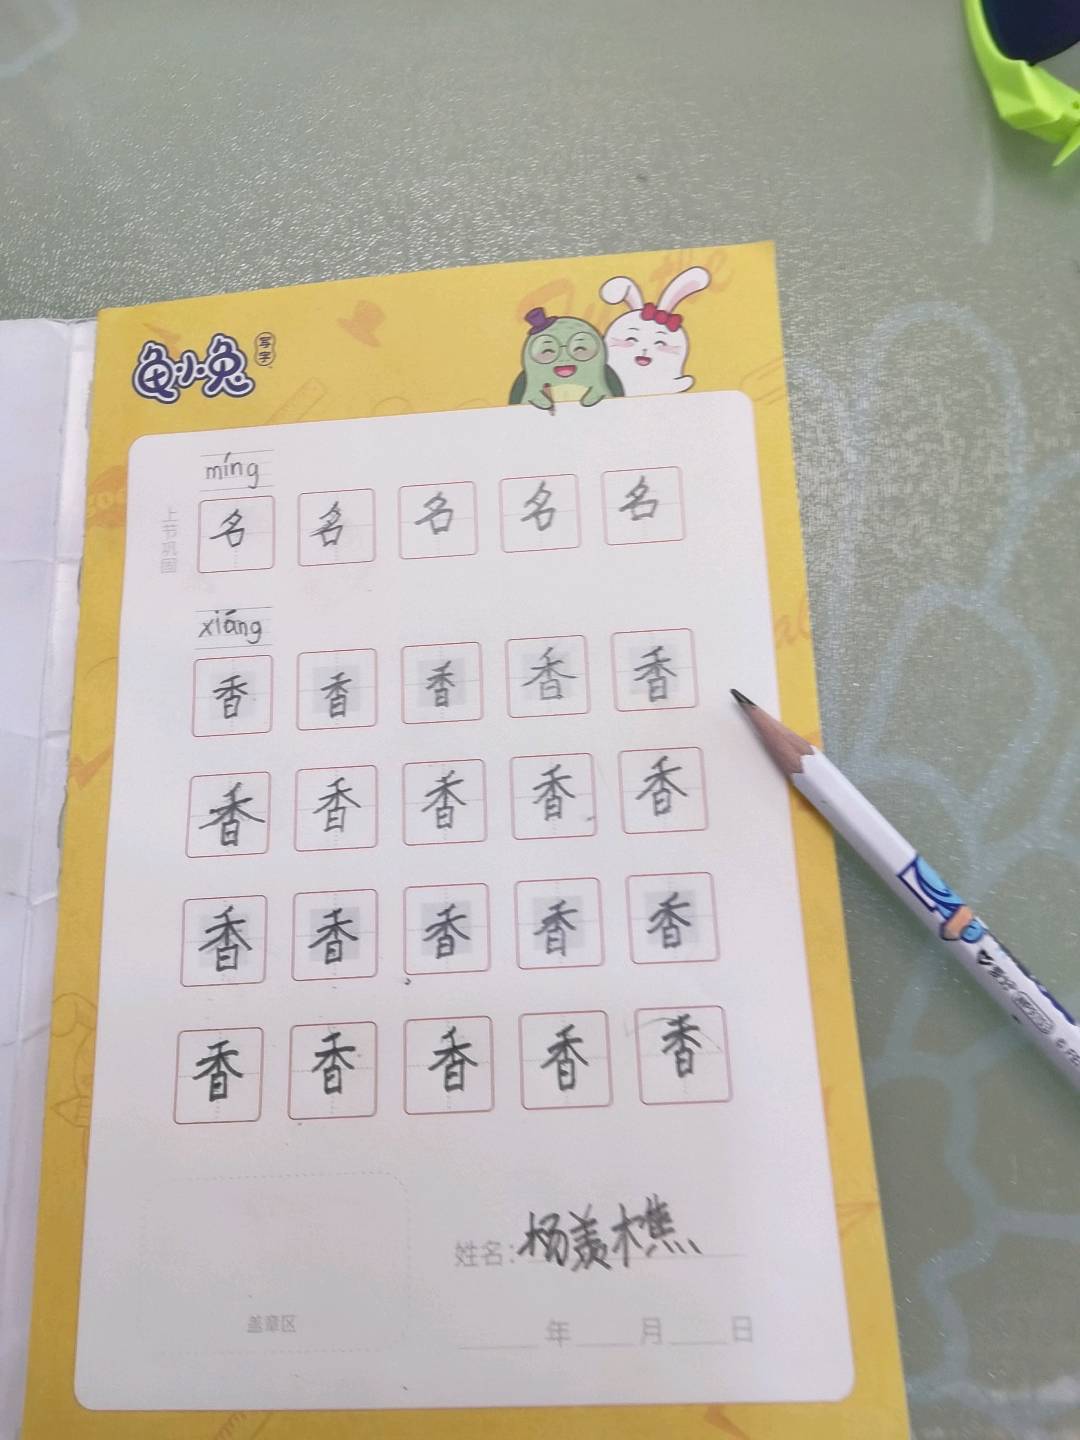 龟小兔 写字
míng
上节巩固
名 名 名 名 名
xiāng
香 香 香 香 香
香 香 香 香 香
香 香 香 香 香
香 香 香 香 香
姓名：杨羡樵
盖章区
年 月 日